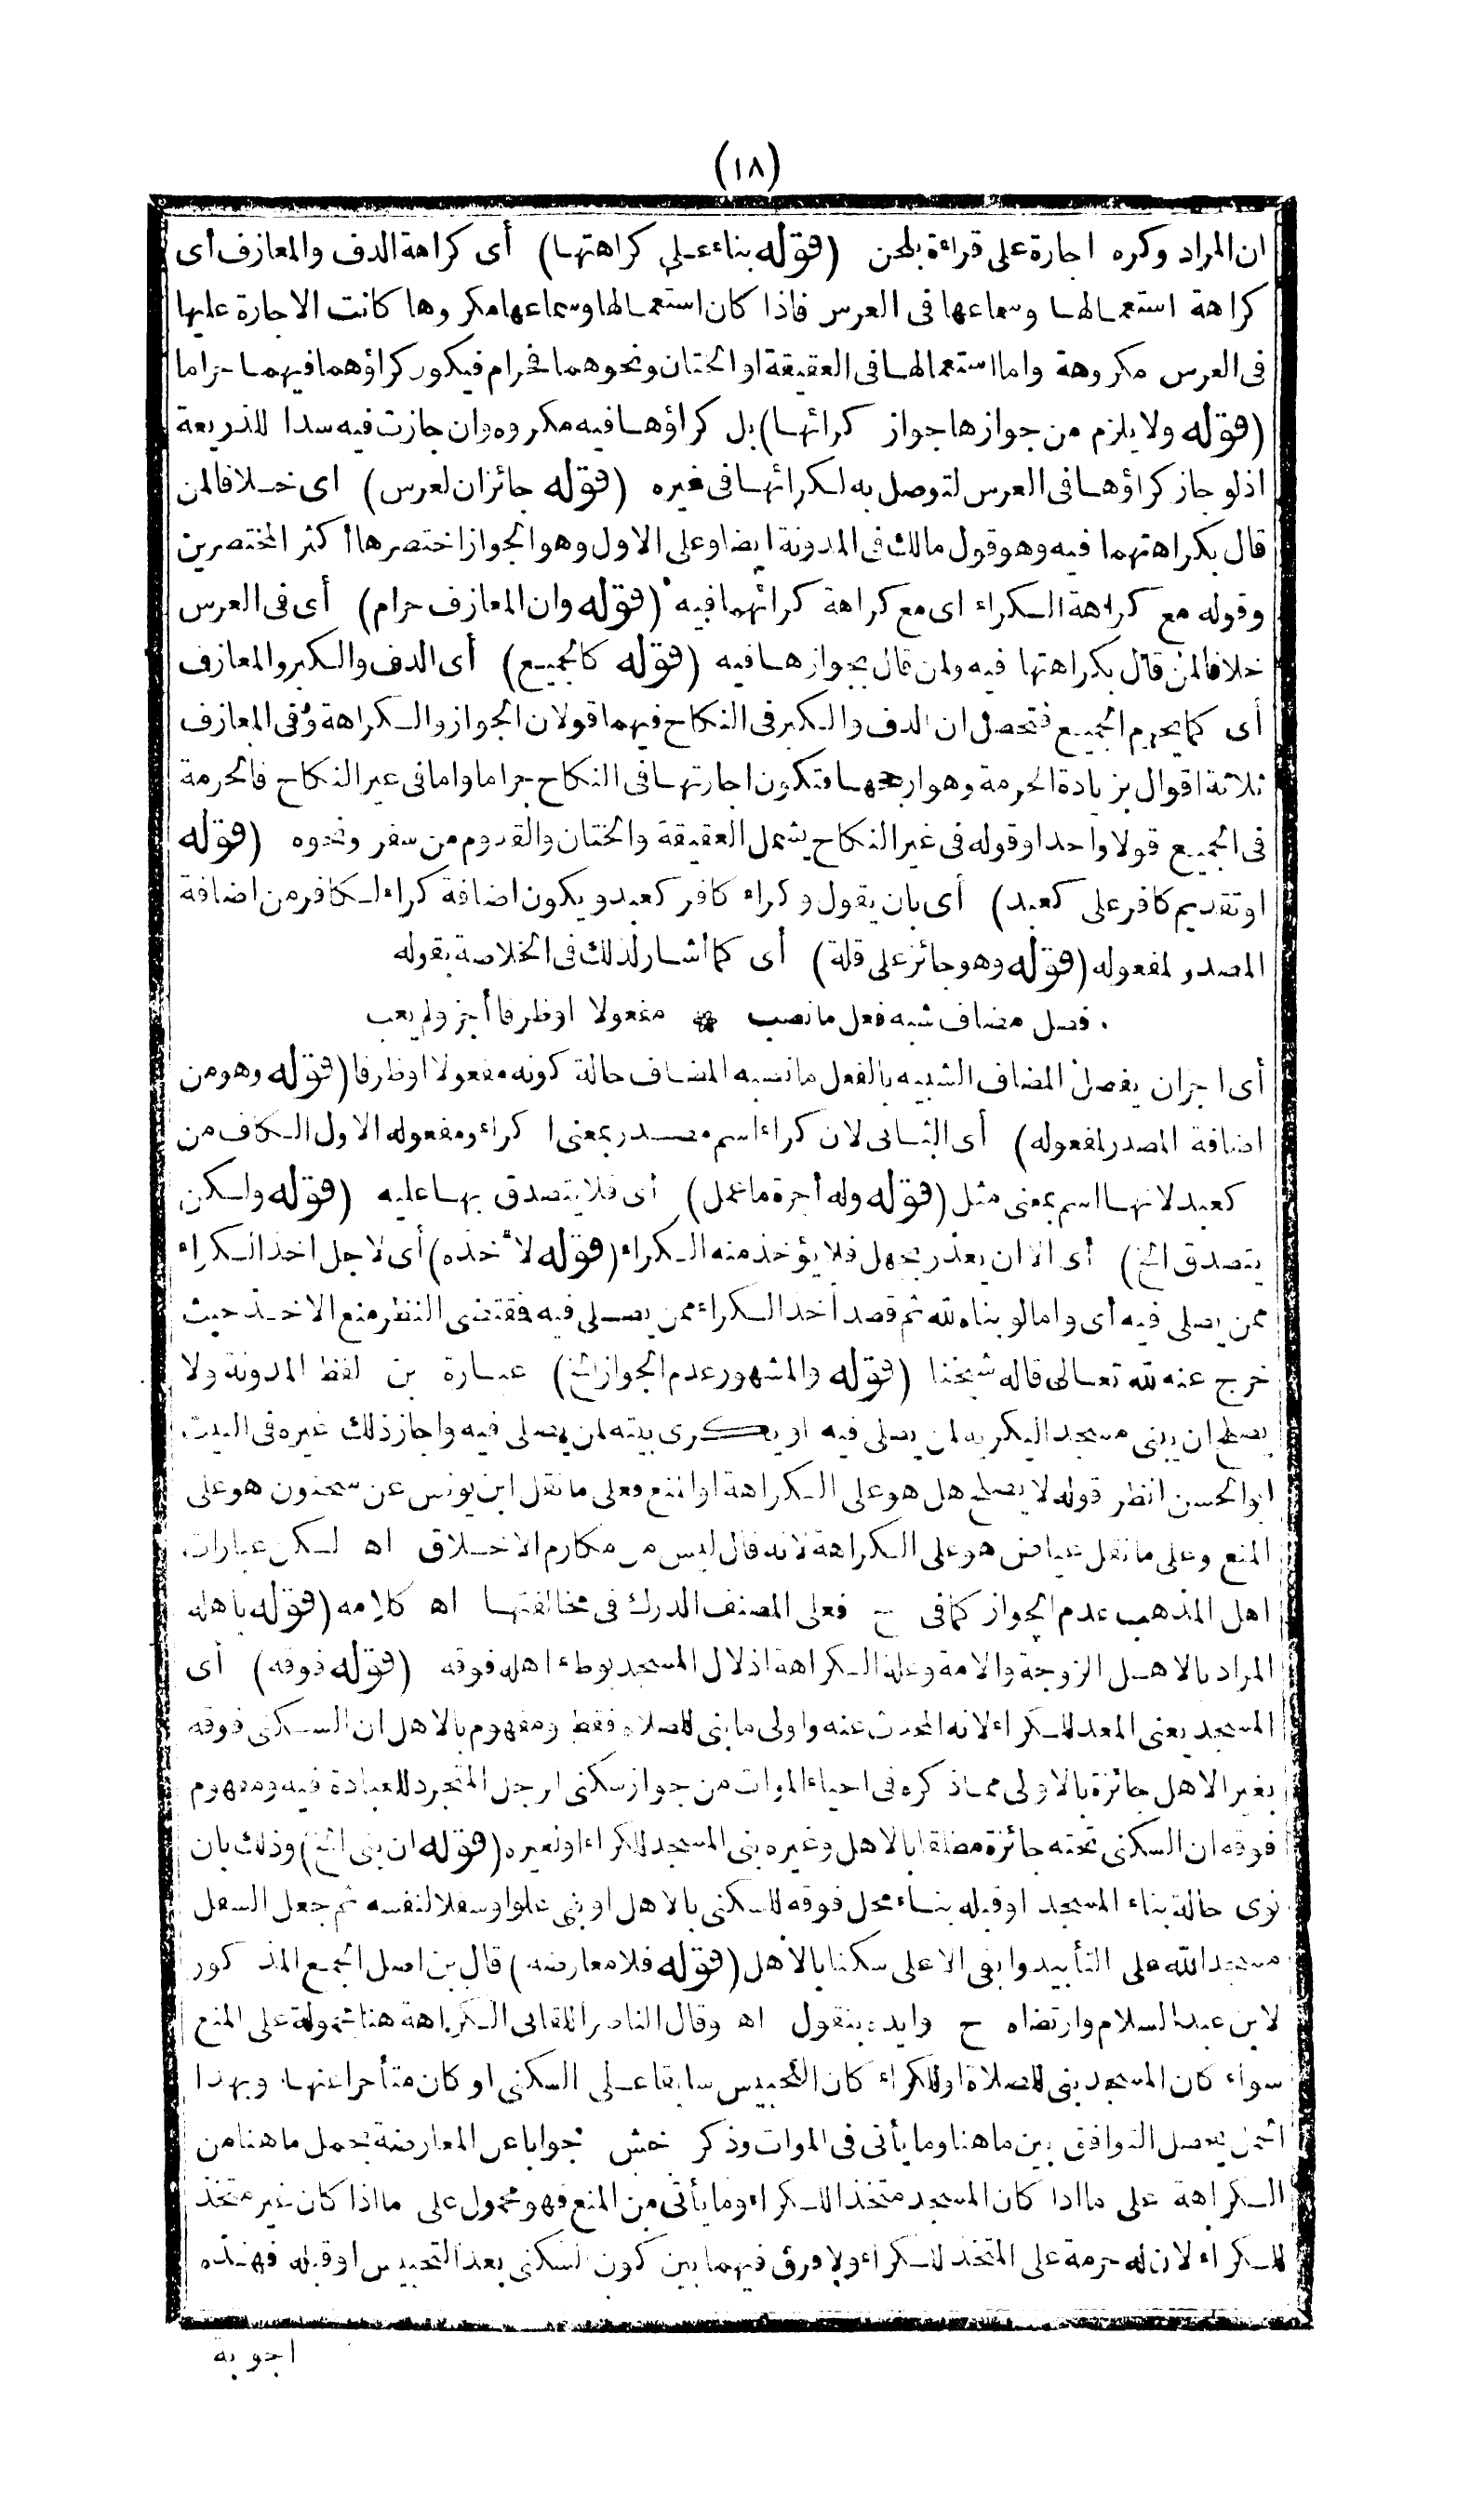 (١٨)
ان المراد وكره اجارة على قراءة بلحن (قوله بناء على كراهتها) أى كراهة الدف والمعازف أى
كراهة استعمالها وسماعها فى العرس فاذا كان استعمالها وسماعها مكروها كانت الاجارة عليها
فى العرس مكروهة واما استعمالها فى العقيقة او الختان ونحوهما فحرام فيكون كراؤهما فيهما حراما
(قوله ولا يلزم من جوازها جواز كرائها) بل كراؤها فيه مكروه وان جازت فيه سدا للذريعة
اذلو جاز كراؤها فى العرس لتوصل به لكرائها فى غيره (قوله جائزان لعرس) اى خلافا لمن
قال بكراهتهما فيه وهو قول مالك فى المدونة ايضا وعلى الاول وهو الجواز اختصرها أكثر المختصرين
وقوله مع كراهة الكراء اى مع كراهة كرائهما فيه (قوله وان المعازف حرام) أى فى العرس
خلافا لمن قال بكراهتها فيه ولمن قال بجوازها فيه (قوله كالجميع) أى الدف والكبر والمعازف
أى كما يحرم الجميع فتحصل ان الدف والكبر فى النكاح فيهما قولان الجواز والكراهة وفى المعازف
ثلاثة اقوال بزيادة الحرمة وهو ارجحها فتكون اجارتها فى النكاح حراما واما فى غير النكاح فالحرمة
فى الجميع قولا واحدا وقوله فى غير النكاح يشمل العقيقة والختان والقدوم من سفر ونحوه (قوله
او تقديم كافر على كعبد) أى بان يقول وكراء كافر كعبد ويكون اضافة كراء لكافر من اضافة
المصدر لمفعوله (قوله وهو جائز على قلة) أى كما أشار لذلك فى الخلاصة بقوله
فصل مضاف شبه فعل ما نصب * مفعولا او ظرفا أجز ولم يعب
أى اجزان يفصل المضاف الشبيه بالفعل ما نصبه المضاف حالة كونه مفعولا او ظرفا (قوله وهو من
اضافة المصدر لمفعوله) أى الثانى لان كراء اسم مصدر بمعنى اكراء ومفعوله الاول الكاف من
كعبد لانها اسم بمعنى مثل (قوله وله أجرة ما عمل) أى فلا يتصدق بها عليه (قوله ولكن
يتصدق الخ) أى الا ان يعذر بجهل فلا يؤخذ منه الكراء (قوله لاخذه) أى لاجل اخذ الكراء
ممن يصلى فيه أى واما لو بناه لله ثم قصد أخذ الكراء ممن يصلى فيه فمقتضى النظر منع الاخذ حيث
خرج عنه لله تعالى قاله شيخنا (قوله والمشهور عدم الجواز الخ) عبارة بن لفظ المدونة ولا
يصلح ان يبنى مسجدا ليكريه لمن يصلى فيه او يكرى بيته لمن يصلى فيه واجاز ذلك غيره فى البيت
ابو الحسن انظر قوله لا يصلح هل هو على الكراهة او المنع فعلى ما نقل ابن يونس عن سحنون هو على
المنع وعلى ما نقل عياض هو على الكراهة لانه قال ليس من مكارم الاخلاق اه لكن عبارات
اهل المذهب عدم الجواز كما فى ح فعلى المصنف الدرك فى مخالفتها اه كلامه (قوله باهله
المراد بالاهل الزوجة والامة وعلة الكراهة اذلال المسجد بوطء اهله فوقه (قوله فوقه) أى
المسجد يعنى المعد للكراء لانه المحدث عنه واولى ما بنى للصلاة فقط ومفهوم بالاهل ان السكنى فوقه
بغير الاهل جائزة بالاولى مما ذكره فى احياء الموات من جواز سكنى لرجل المتجرد للعبادة فيه ومفهوم
فوقه ان السكنى تحته جائزة مطلقا بالاهل وغيره بنى المسجد للكراء او لغيره (قوله ان بنى الخ) وذلك بان
نوى حالة بناء المسجد اوقبله بناء محل فوقه للسكنى بالاهل او بنى علوا وسفلا لنفسه ثم جعل السفل
مسجدا لله على التأبيد وابقى الاعلى سكنا بالاهل (قوله فلا معارضه) قال بن اصل الجمع المذكور
لابن عبد السلام وارتضاه ح وايده بنقول اه وقال الناصر اللقانى الكراهة هنا محمولة على المنع
سواء كان المسجد بنى للصلاة او للكراء كان التحبيس سابقا على السكنى او كان متأخرا عنها وبهذا
الحمل يحصل التوافق بين ما هنا وما يأتى فى الموات وذكر خش جوابا عن المعارضة بحمل ما هنا من
الكراهة على ما اذا كان المسجد متخذا للكراء وما يأتى من المنع فهو محمول على ما اذا كان غير متخذ
للكراء لان له حرمة على المتخذ للكراء ولا فرق فيهما بين كون السكنى بعد التحبيس او قبله فهذه
اجوبة